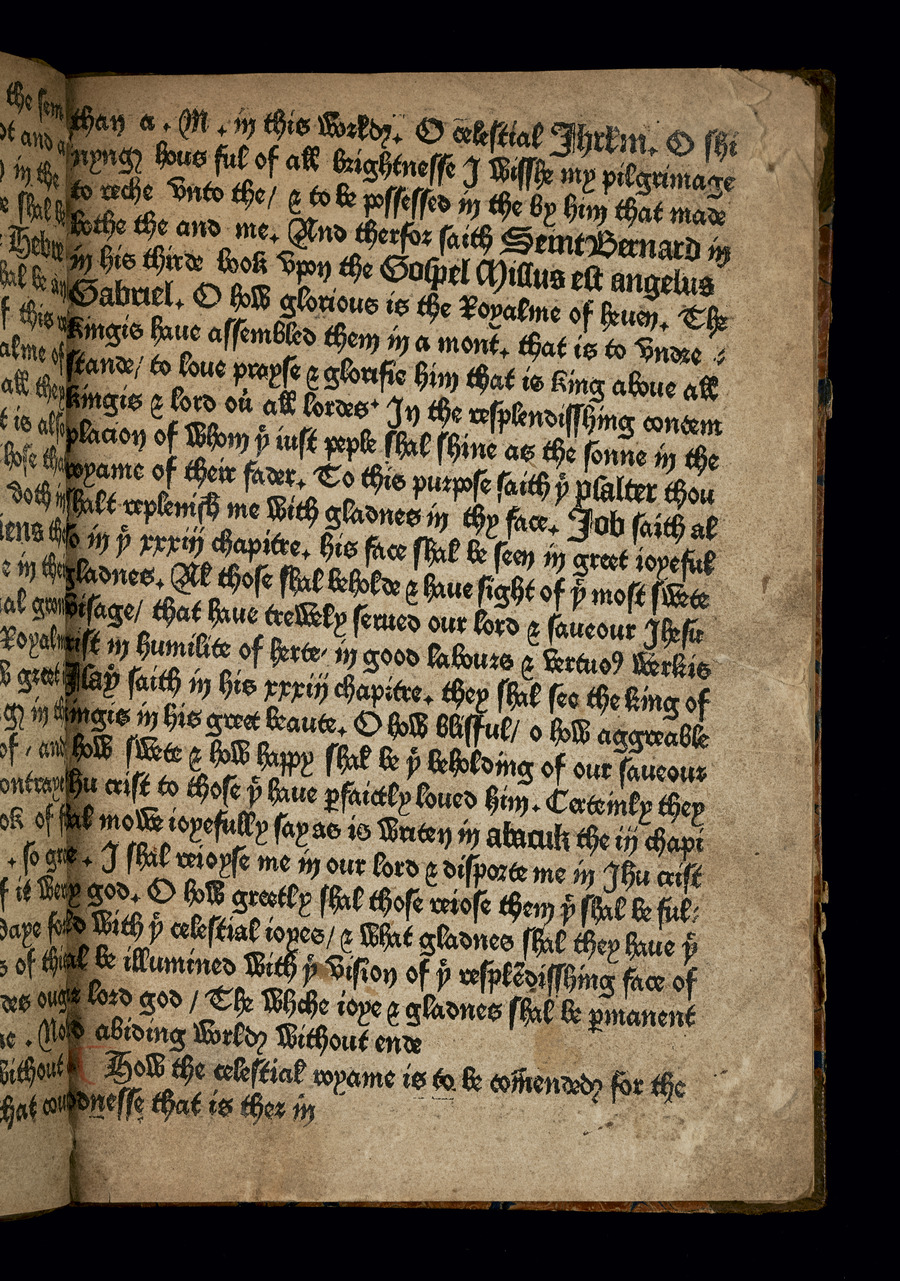 the sem
ot and a
) in the
e shal be
Hebre
hal be an
f this w
alme of
all they
t is also
hose tha
doth in
iens the
e in the
ial gron
Royalm
w greet
gh in the
of / and
ontraye
ok of
. so gre
f it wery
daye fo
s of thi
des oug
ne . No
without
that cou
than a . M . in this worldꝫ. O celestial Jhrlm. O shi
nyngꝫ hous ful of all brightnesse J wisshe my pilgrimage
to reche vnto the/ & to be possessed in the by him that made
bothe the and me. And therfor saith Seint Bernard in
in his thirde book vpon the Gospel Missus est angelus
Gabriel. O how glorious is the Royalme of heuen. The
kingis haue assembled them in a mont̄. that is to vndre :
stande/ to loue prayse & glorifie him that is king aboue all
kingis & lord ou̇ all lordes. In the resplendisshing contem
placion of whom yͤ iust peple shal shine as the sonne in the
royame of their fader. To this purpose saith yͤ psalter thou
shalt replenish me with gladnes in thy face. Job saith al
so in yͤ xxxiij chapitre. his face shal be seen in greet ioyeful
gladnes. Al those shal beholde & haue sight of yͤ most swete
visage/ that haue trewely serued our lord & saueour Jhesu
rist in humilite of herte/ in good labours & vertuoꝰ werkis
Jsay saith in his xxxiij chapitre. they shal see the king of
ingis in his greet beaute. O how blisful/ o how aggreable
how swete & how happy shal be yͤ beholding of our saueour
hu crist to those yͭ haue ꝑfaictly loued him. Certeinly they
al mowe ioyefully say as is writen in abacuk the iij chapi
e . J shal reioyse me in our lord & disporte me in Jhu crist
y god. O how greetly shal those reiose them yͭ shal be ful:
d with yͤ celestial ioyes/ & what gladnes shal they haue yͭ
al be illumined with yͤ vision of yͤ resplēdisshing face of
r lord god / The whche ioye & gladnes shal be ꝑmanent
d abiding worldꝫ without ende
How the celestial royame is to be com̄endedꝫ for the
odnesse that is ther in